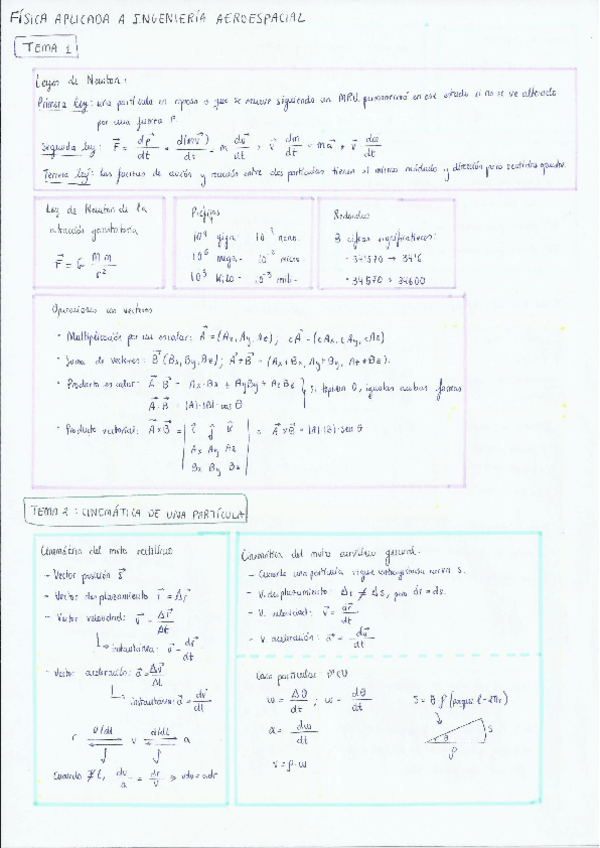 FÍSICA APLICADA A INGENIERÍA AEROESPACIAL
TEMA 1
Leyes de Newton:
Primera ley: una partícula en reposo o que se mueve siguiendo un MRU permanecerá en ese estado si no se ve alterado
por una fuerza F.
Segunda ley: F⃗ = dp⃗/dt = d(mv⃗)/dt = m dv⃗/dt + v⃗ dm/dt = ma⃗ + v⃗ dm/dt
Tercera ley: Las fuerzas de acción y reacción entre dos partículas tienen el mismo módulo y dirección pero sentidos opuestos.
Ley de Newton de la
atracción gravitatoria
F⃗ = G M m / r²
Prefijos
10⁹ giga- 10⁻⁹ nano-
10⁶ mega- 10⁻⁶ micro-
10³ kilo- 10⁻³ mili-
Redondeo
3 cifras significativas:
· 34'570 → 34'6
· 34570 → 34600
Operaciones con vectores
· Multiplicación por un escalar: A⃗ = (Ax, Ay, Az); cA⃗ = (cAx, cAy, cAz)
· Suma de vectores: B⃗ (Bx, By, Bz); A⃗+B⃗ = (Ax+Bx, Ay+By, Az+Bz).
· Producto escalar: A⃗·B⃗ = Ax·Bx + AyBy + AzBz
A⃗·B⃗ = |A|·|B|·cos θ
θ, igualas ambas formas
· Producto vectorial: A⃗×B⃗ = | i j k | = A⃗×B⃗ = |A|·|B|·sen θ
Ax Ay Az
Bx By Bz
TEMA 2: CINEMÁTICA DE UNA PARTÍCULA
Cinemática del mvto rectilíneo
- Vector posición s⃗
- Vector desplazamiento r⃗ = Δs⃗
- Vector velocidad: v⃗ = Δr⃗/Δt
↳ instantánea: v⃗ = dr⃗/dt
- Vector aceleración: a⃗ = Δv⃗/Δt
↳ instantánea: a⃗ = dv⃗/dt
r d/dt v d/dt a
∫ ∫
dv/a = dr/v ⇒ vdv = adr
Cinemática del mvto curvilíneo general.
- Cuando una partícula sigue una curva s.
- V. desplazamiento Δr ≠ Δs, pero dr = ds.
- V. velocidad: v⃗ = dr⃗/dt
- V. aceleración: a⃗ = dv⃗/dt
Caso particular: MCU
ω = Δθ/Δt ; ω = dθ/dt
α = dω/dt
v = ρ·ω
s = θ ρ (porque l = 2πr)
θ s
ρ